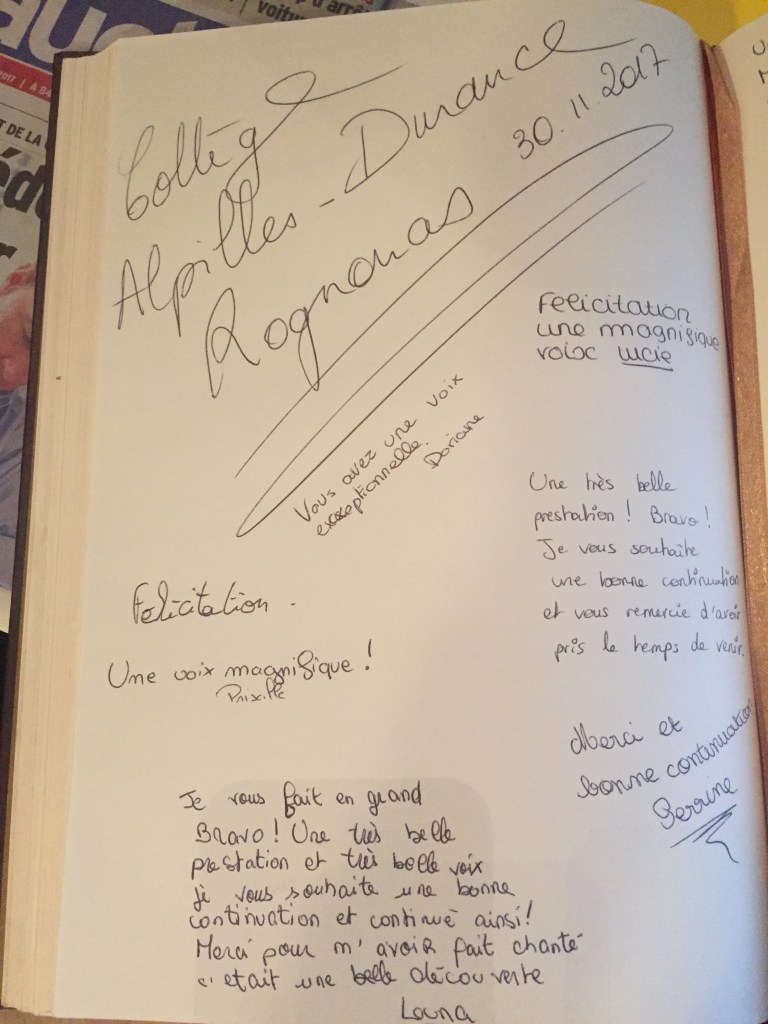 voitur
d'arrê
2017 | A 84
T DE LA
Collège
Alpilles-Durance
30.11.2017
Rognonas
Felicitation
une magnifique
voix Lucie
Vous avez une voix
exceptionnelle.
Doriane
Une très belle
prestation ! Bravo !
Je vous souhaite
une bonne continuation
et vous remercie d'avoir
pris le temps de venir.
Felicitation.
Une voix magnifique !
Prixille
Merci et
bonne continuation
Perrine
Je vous fait en grand
Bravo ! Une très belle
prestation et très belle voix
je vous souhaite une bonne
continuation et continuè ainsi !
Merci pour m'avoir fait chanté
c'etait une belle découverte
Louna